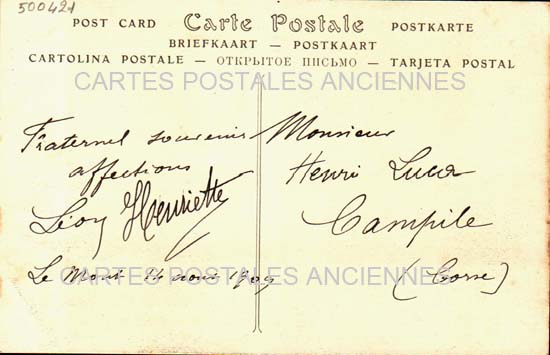 500421
POST CARD Carte Postale POSTKARTE
BRIEFKAART — POSTKAART
CARTOLINA POSTALE — ОТКРЫТОЕ ПИСЬМО — TARJETA POSTAL
CARTES POSTALES ANCIENNES
Fraternel souvenir
affections
Léon Henriette
Le Mont 14 aout 1909
Monsieur
Henri Luca
Campile
(Corse)
CARTES POSTALES ANCIENNES